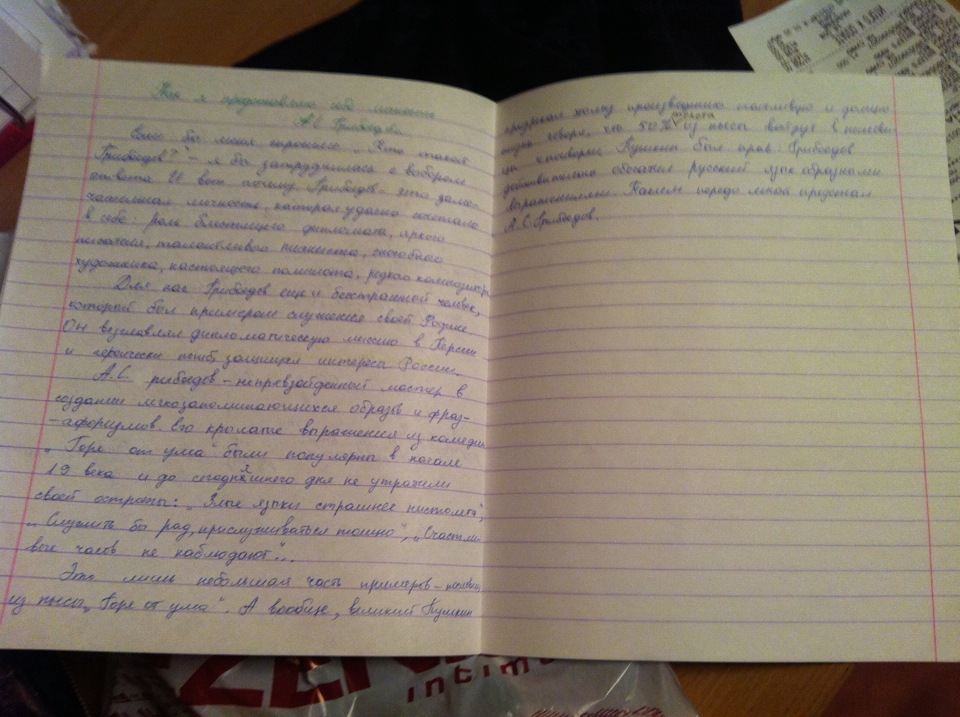 Как я представляю себе
А.С. Грибоедова
Если бы меня спросили „Кто такой
Грибоедов?" – я бы затруднилась с выбором
ответа. И вот почему. Грибоедов – это
личность, которая удачно сочетала
в себе: роль блестящего дипломата, яркого
писателя, талантливого пианиста, способного
художника, настоящего полиглота, редкого композитора.
Для нас Грибоедов еще и бесстрашный человек,
который был примером служения своей Родине.
Он возглавлял дипломатическую миссию в Персии
и героически погиб защищая интересы России.
А.С. рибоедов – непревзойдённый мастер в
создании легкозапоминающихся образов и фраз-
-афоризмов. Его крылатые выражения из комедии
„Горе от ума" были популярны в начале
19 века и до сегодняшнего дня не утратили
своей остроты: „Злые языки страшнее пистолета",
„Служить бы рад, прислуживаться тошно", „Счастли
вые часов не наблюдают"...
Это лишь небольшая часть примеров –
из пьесы „Горе от ума". А вообще, великий Пушкин
этому произведению счастливую и долгую
говоря, что 50% из пьесы войдут в послови
цы и поговорки. Пушкин был прав. Грибоедов
действительно обогатил русский язык образными
выражениями. Таким передо мной предстал
А.С. Грибоедов.
intim